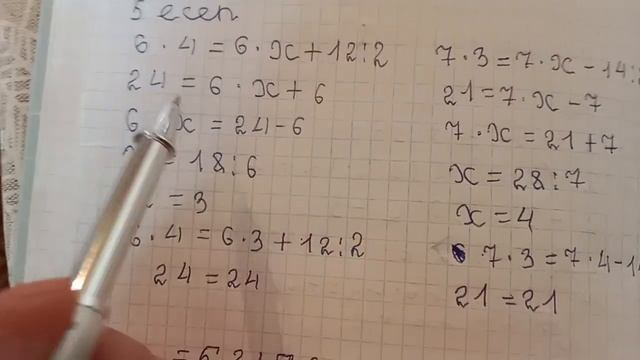 5 есеп
6 · 4 = 6 · x + 12 : 2
24 = 6 · x + 6
6 x = 24 - 6
= 18 : 6
= 3
6 · 4 = 6 · 3 + 12 : 2
24 = 24
7 · 3 = 7 · x - 14 :
21 = 7 · x - 7
7 · x = 21 + 7
x = 28 : 7
x = 4
7 · 3 = 7 · 4 - 1
21 = 21